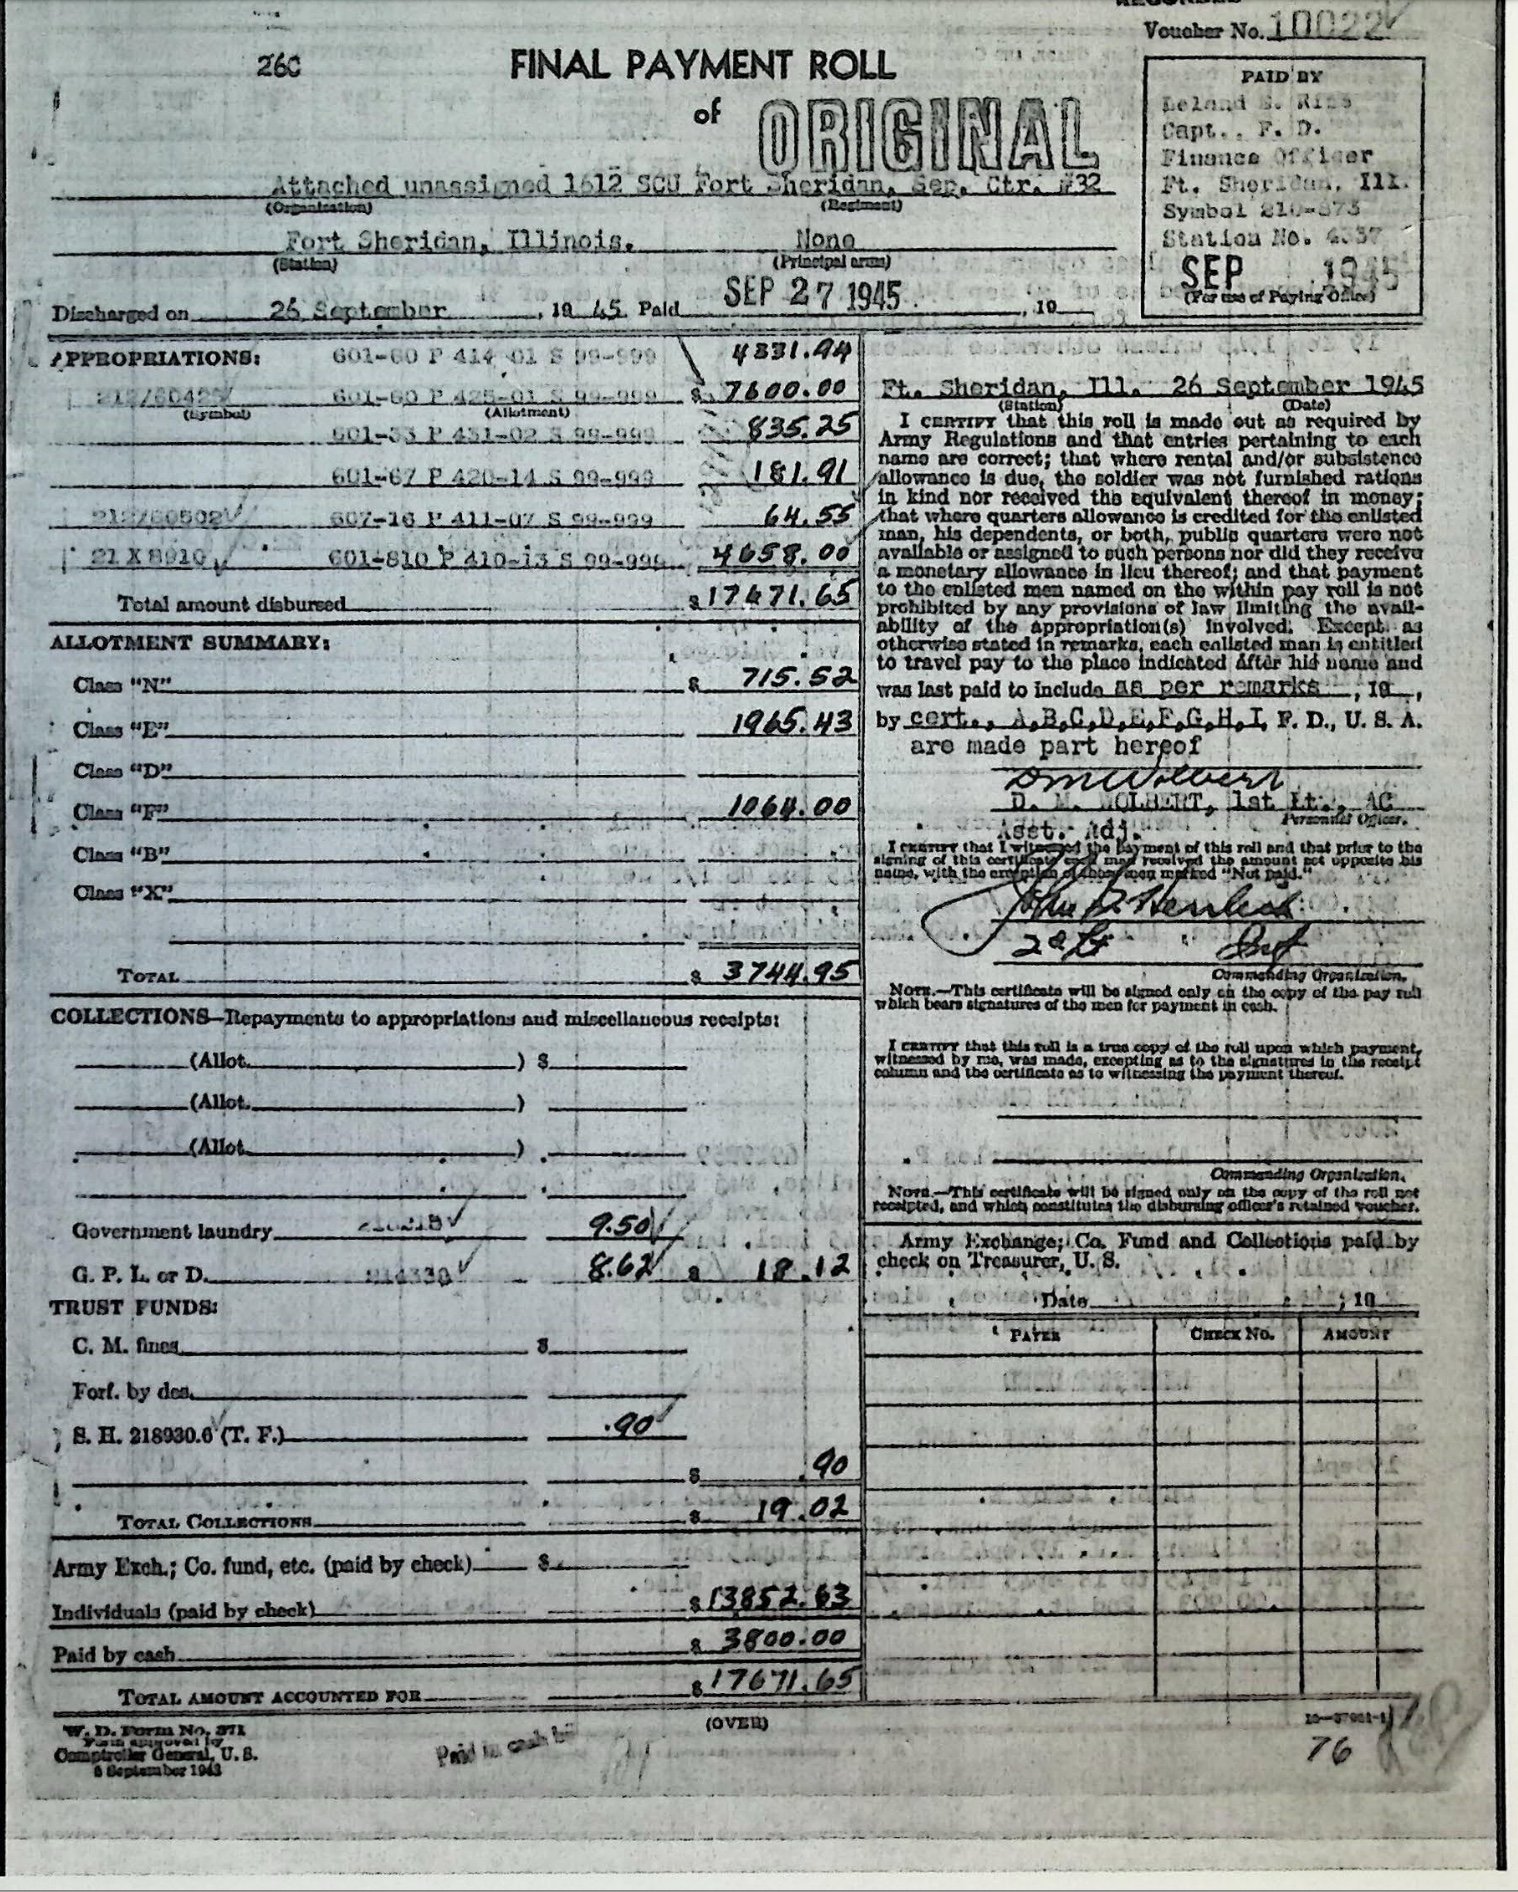 Voucher No. 10022
26C
FINAL PAYMENT ROLL
of ORIGINAL
PAID BY
Leland E.
Capt., F. D.
Finance Officer
Ft. Sheridan, Ill.
Symbol 210-873
Station No. 4337
SEP 1945
(For use of Paying Office)
Attached unassigned 1612 SCU Fort Sheridan, Sep. Ctr. #32
(Organization) (Regiment)
Fort Sheridan, Illinois. None
(Station) (Principal arms)
Discharged on 26 September, 19 45 Paid SEP 27 1945, 19
APPROPRIATIONS: 601-60 P 414-01 S 99-999 4331.94
212/60425 601-60 P 425-01 S 99-999 $ 7600.00
(Symbol) (Allotment)
601-33 P 431-02 S 99-999 835.25
601-67 P 420-14 S 99-999 181.91
212/60502 607-16 P 411-07 S 99-999 64.55
21X8910 601-810 P 410-13 S 99-999 4658.00
Total amount disbursed $ 17671.65
ALLOTMENT SUMMARY:
Class "N" $ 715.52
Class "E" 1965.43
Class "D"
Class "F" 1064.00
Class "B"
Class "X"
TOTAL $ 3744.95
COLLECTIONS—Repayments to appropriations and miscellaneous receipts:
(Allot. ) $
(Allot. )
(Allot. )
Government laundry 9.50
G. P. L. or D. 8.62 $ 18.12
TRUST FUNDS:
C. M. fines $
Forf. by des.
S. H. 218930.6 (T. F.) .90
$ .90
TOTAL COLLECTIONS $ 19.02
Army Exch.; Co. fund, etc. (paid by check) $
Individuals (paid by check) $ 13852.63
Paid by cash $ 3800.00
TOTAL AMOUNT ACCOUNTED FOR $ 17671.65
W. D. Form No. 371
Form approved by
Comptroller General, U. S.
8 September 1943
Paid in cash
(OVER)
Ft. Sheridan, Ill. 26 September 1945
(Station) (Date)
I CERTIFY that this roll is made out as required by
Army Regulations and that entries pertaining to each
name are correct; that where rental and/or subsistence
allowance is due, the soldier was not furnished rations
in kind nor received the equivalent thereof in money;
that where quarters allowance is credited for the enlisted
man, his dependents, or both, public quarters were not
available or assigned to such persons nor did they receive
a monetary allowance in lieu thereof; and that payment
to the enlisted men named on the within pay roll is not
prohibited by any provisions of law limiting the avail-
ability of the appropriation(s) involved. Except as
otherwise stated in remarks, each enlisted man is entitled
to travel pay to the place indicated after his name and
was last paid to include as per remarks, 19 ,
by cert., A,B,C,D,E,F,G,H,I, F. D., U. S. A.
are made part hereof
D M Wolbert
D. M. WOLBERT, 1st Lt., AC
Personnel Officer.
Asst. Adj.
I CERTIFY that I witnessed the payment of this roll and that prior to the
signing of this certificate each man received the amount set opposite his
name, with the exception of those men marked "Not paid."
2d Lt Inf
Commanding Organization.
NOTE.—This certificate will be signed only on the copy of the pay roll
which bears signatures of the men for payment in cash.
I CERTIFY that this roll is a true copy of the roll upon which payment,
witnessed by me, was made, excepting as to the signatures in the receipt
column and the certificate as to witnessing the payment thereof.
Commanding Organization.
NOTE.—This certificate will be signed only on the copy of the roll not
receipted, and which constitutes the disbursing officer's retained voucher.
Army Exchange; Co. Fund and Collections paid by
check on Treasurer, U. S.
Date , 19
PAYEE CHECK NO. AMOUNT
76